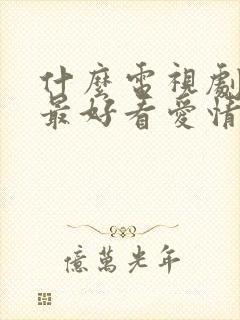 什麼電視劇
最好看愛情
億萬光年